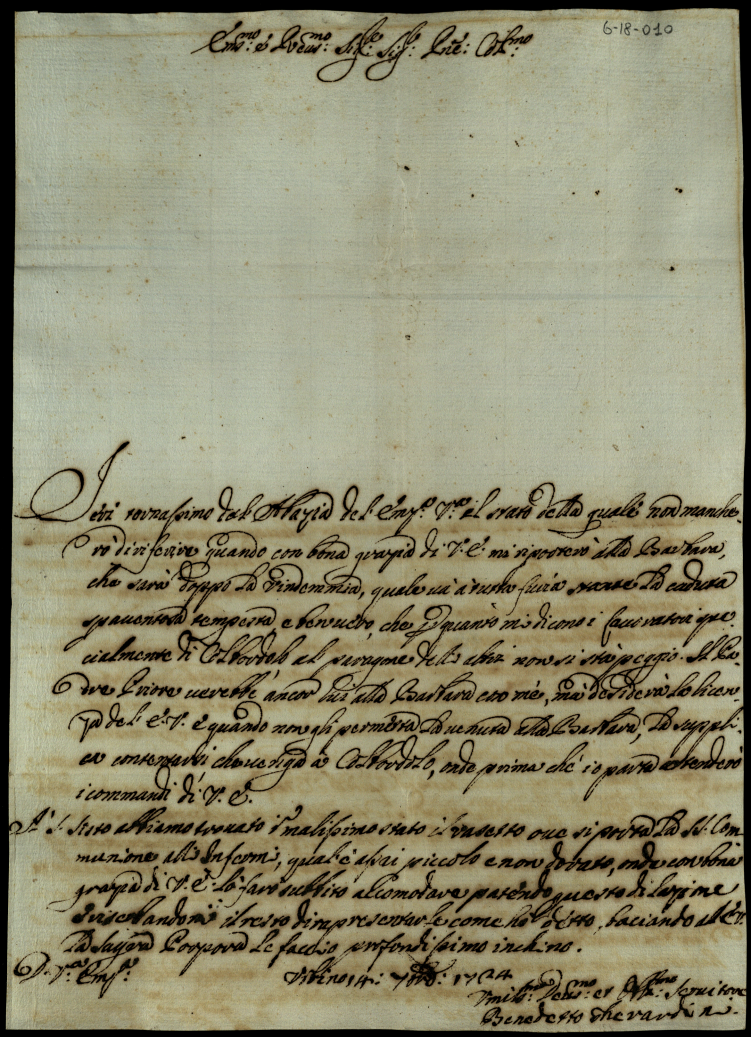 6-18-010
Em̃o: e Reṽmo: Sig:re Sig:re Pñe: Col:mo
Ieri tornassimo dal Abazia del Em:a V:ra al stato della quale non manche-
rò di riferire quando con bona grazia di V: E: mi riporterò alla Barbara,
che sarà doppo la Vindemmia, quale và à tutta furia stante la caduta
spaventosa tempesta, e ben vero, che per quanto mi dicono i lavoratori spe-
cialmente di Colbordolo al paragone delle altri non si stà peggio. Il Pa-
dre Priore verebbe ancor lui alla Barbara con mè, mà desidera la licen-
za del E: V: e quando non gli permetta la venuta alla Barbara, la suppli-
ca contentarsi che venga à Colbordolo, onde prima che io parta attenderò
i commandi di V: E:
A S: Sisto abbiamo trovato in malissimo stato il vasetto ove si porta la SS: Com-
munione alli Infermi, qual'è assai piccolo e non dorato, onde con bona
grazia di V: E: lo farò subbito accomodare patendo questo di lazione
riserbandomi il resto di rapresentarle come hò detto, baciando al E: V:
la Sagra Porpora le faccio profondissimo inchino.
D: V:ra Em:a
Urbino 14: 7bre: 1724
Umil:mo Dev:mo et Obl:mo Servitore
Benedetto Gherardini